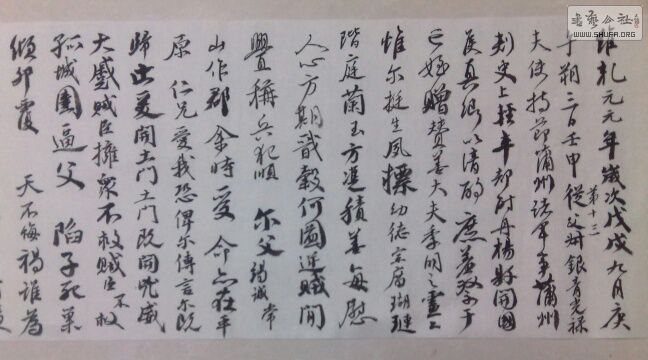 維乾元元年歲次戊戌九月庚
午朔三日壬申從父叔銀青光祿
第十三
夫使持節蒲州諸軍事蒲州
刺史上輕車都尉丹楊縣開國
侯真卿以清酌庶羞祭于
亡姪贈贊善大夫季明之靈曰
惟爾挺生夙標幼德宗廟瑚璉
階庭蘭玉方憑積善每慰
人心方期戩穀何圖逆賊間
釁稱兵犯順 爾父竭誠常
山作郡余時受命亦在平
原 仁兄愛我恐俾爾傳言爾既
歸止爰開土門土門既開兇威
大蹙賊臣擁衆不救賊臣不救
孤城圍逼父 陷子死巢
傾卵覆 天不悔禍誰為
書藝公社
WWW.SHUFA.ORG